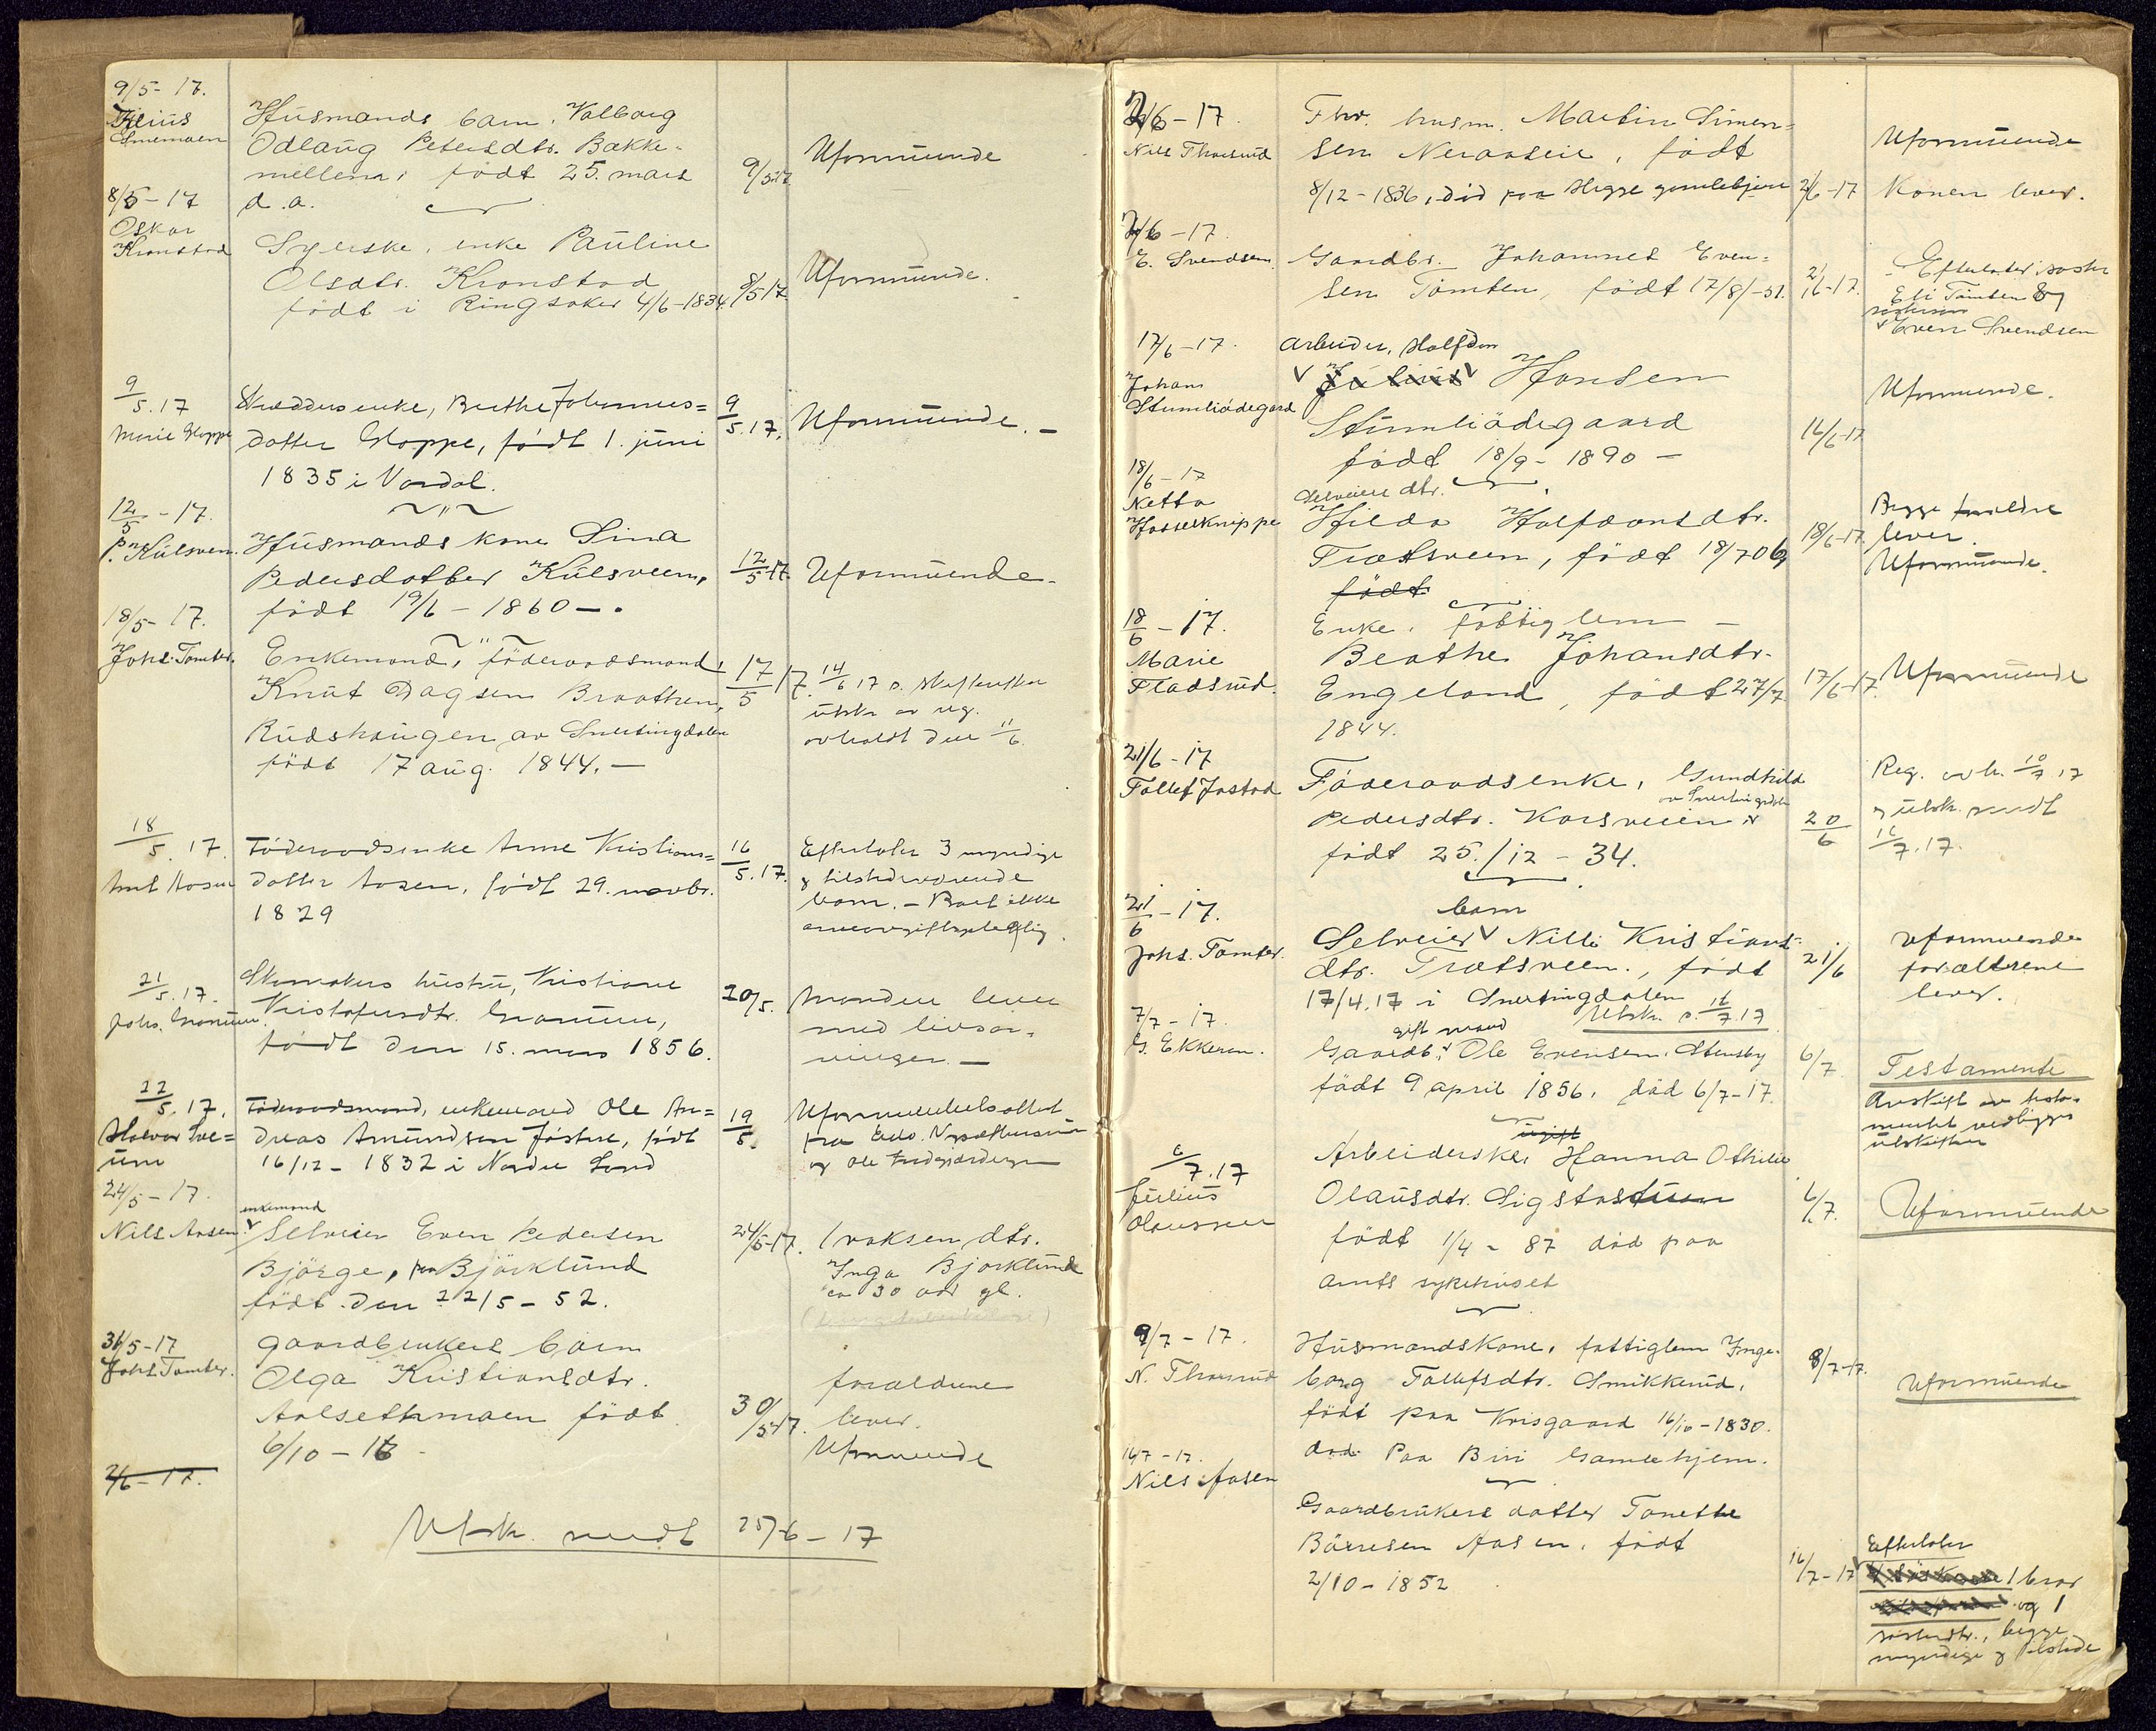 9/5 - 17.
Julius
Husmands barn, Valborg
Odlaug Petersdtr. Bakke-
mellem, födt 25. mars
d. a.
9/5 17
Uformuende
8/5 - 17
Oskar
Kronstad
Syerske, enke Pauline
Olsdtr. Kronstad
födt i Ringsaker 4/6 - 1834.
8/5 17
Uformuende.
9/5. 17
Marie Hoppe
enke, Berthe Johannes=
datter Hoppe, födt 1. juni
1835 i Vardal.
9/5. 17.
Uformuende. -
12/5 - 17.
P. Kulsveen.
Husmands kone Lina
Pedersdatter Kulsveen,
födt 19/6 - 1860 -.
12/5 17.
Uformuende.
18/5 - 17.
Johs. Tomter.
Enkemand, föderaadsmand,
Knut Dagsen Braathen,
Rudshaugen av Snertingdalen
födt 17 aug. 1844. -
17/5 17.
14/6 17 s.
utsk av reg.
avholdt den 11/6.
18/5. 17.
Aasen
Föderaadsenke Anne Kristians=
datter Aasen, födt 29. novbr.
1829
16/5. 17.
Efterlater 3 myndige
& tilstedeværende
barn. - Boet ikke
arveavgiftspligtig.
21/5. 17.
Johs.
Skomakers hustru, Kristiane
Kristofersdtr.
födt den 15. mars 1856.
20/5.
Manden lever
med livsar-
vinger. -
22/5. 17.
Föderaadsmand, enkemand Ole An=
dreas Amundsen födt
16/12 - 1832 i Nordre Land
19/5.
fra
og Ole
24/5 - 17.
Nils Aasen
enkemand
Selveier Even Pedersen
Björge, fra Björklund
födt den 22/5 - 52.
24/5 - 17.
1 voksen dtr.
Inga Bjorklund
ca 30 aar gl.
31/5 - 17
Johs Tomter.
gaardbrukers barn
Olga Kristiansdtr.
Aalsethmoen födt
6/10 - 16
30/5 17.
foraldrene
lever.
Uformuende
2/6 - 17.
Utsk. sendt 25/6 - 17
2/6 - 17.
Nils Thorsrud
Fhv. husm. Martin Simen=
sen Neraaseie, födt
8/12 - 1836, död paa gamlehjem
2/6 - 17
Uformuende
Konen lever.
2/6 - 17.
E. Svendsen.
Gaardbr. Johannes Even=
sen Tomten, födt 17/8 - 51.
2/6 - 17.
Efterlater
Eli Tomten og
Even Svendsen
17/6 - 17.
Johans
Stumliödegard
arbeider, Halfdan
Julius Hansen
Stumliödegaard
födt 18/9 - 1890 -
16/6 17
Uformuende.
18/6 - 17
Netta
Hasselknippe
Selveiers dtr.
Hilda Halfdansdtr.
Trætsveen, födt 18/7 06,
födt
18/6 - 17.
Begge foreldre
lever.
Uformuende.
18/6 - 17.
Marie
Fladsrud.
Enke, fattiglem -
Beathe Johansdtr.
Engeland, födt 27/7
1844.
17/6 - 17.
Uformuende
21/6 - 17
Tollef Jostad
Föderaadsenke, Gundhild
av Snertingdalen
Pedersdtr. Korsveien
födt 25./12 - 34.
20/6
Reg. avh. 10/7 17
& utsk. sendt
16/7. 17.
21/6 - 17.
Johs. Tomter.
barn
Selveier Nilli Kristians-
dtr. Trætsveen., födt
17/4. 17 i Snertingdalen
21/6
uformuende
forældrene
lever.
7/7 - 17.
G. Ekkeren.
Utsk. s. 16/7. 17
gift mand
Gaardb., Ole Evensen Stensby
födt 9 april 1856, död 6/7 - 17.
6/7
Testamente
Avskrift av testa-
mentet vedligger
utskriften
6/7. 17
Julius
Olaussen
ugift
Arbeiderske, Hanna Othilie
Olausdtr. Sigstad
födt 1/4 - 87 död paa
amts sykehuset
6/7.
Uformuende
9/7 - 17.
N. Thorsrud
Husmandskone, fattiglem Inge-
borg Tollefsdtr. Smikkerud,
födt paa Krisgaard 16/10 - 1830.
död Paa Biri Gamlehjem.
8/7 - 17.
Uformuende
16/7 - 17.
Nils Aasen
Gaardbrukers datter Tonette
Börresen Aasen, födt
2/10 - 1852
16/7 - 17
Efterlater
1 bror
og 1
sösterdtr., begge
myndige & tilstede